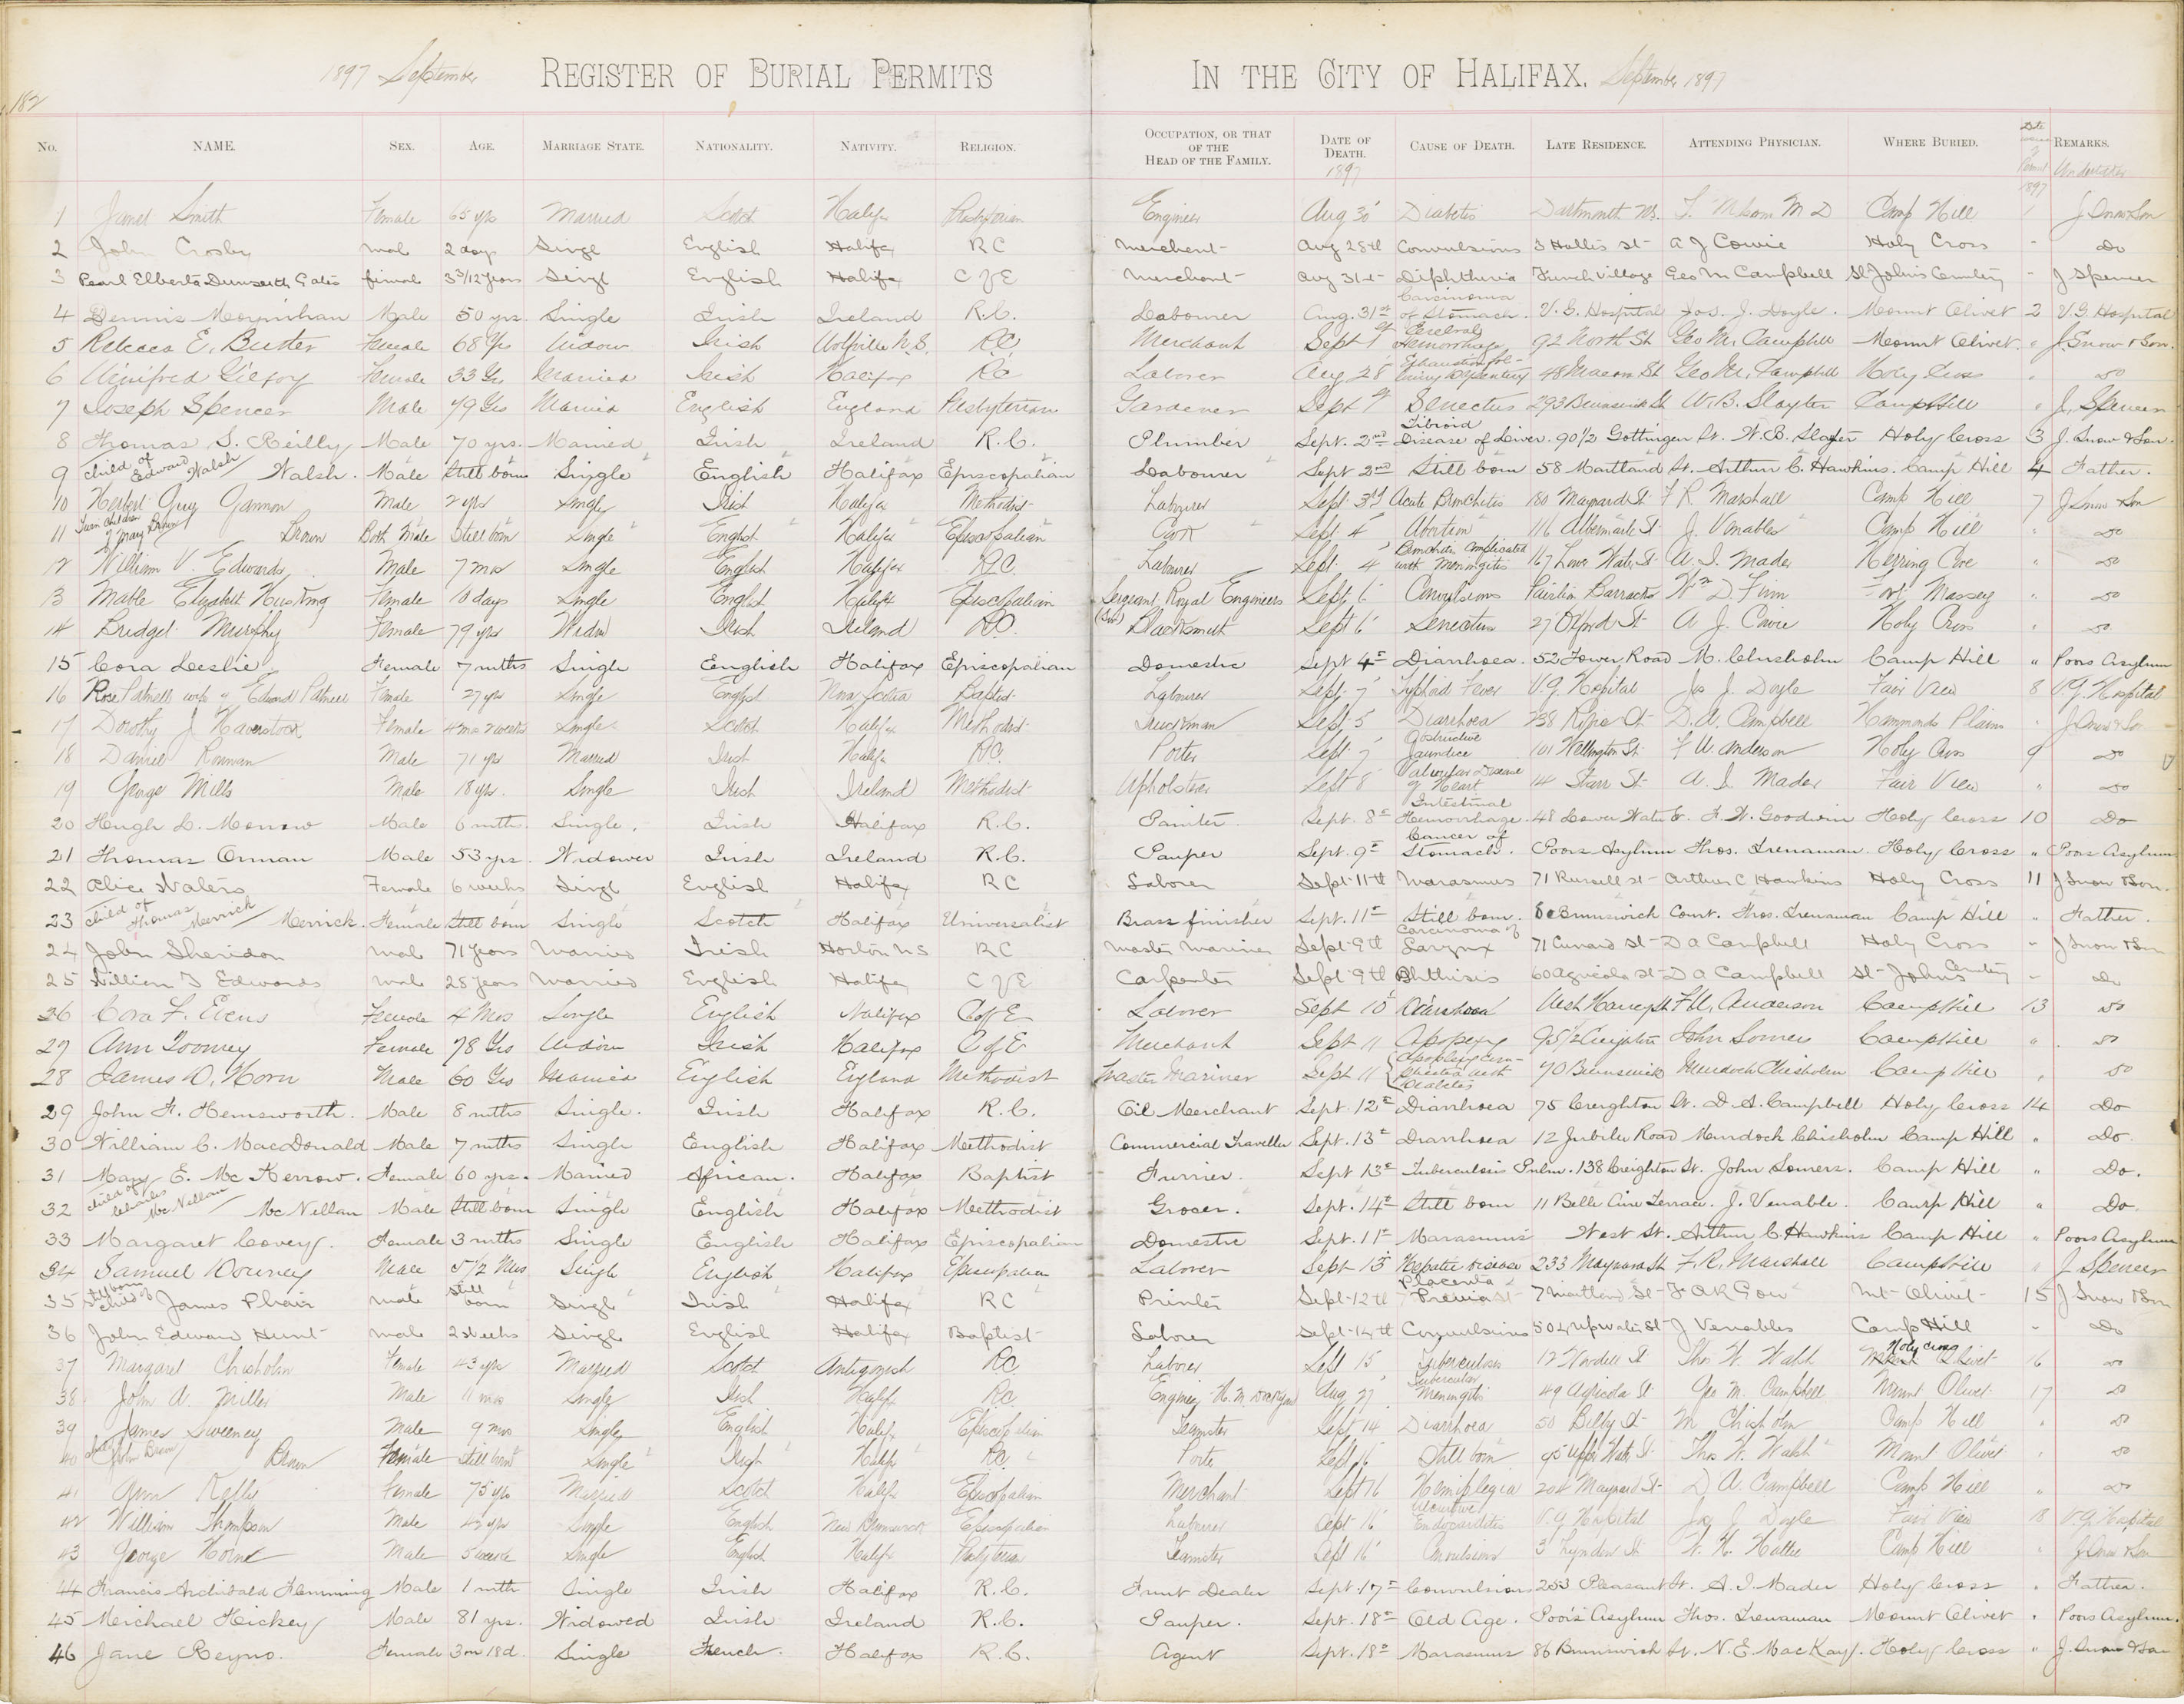 182
1897 September REGISTER OF BURIAL PERMITS IN THE CITY OF HALIFAX. September 1897
No. NAME. SEX. AGE. MARRIAGE STATE. NATIONALITY. NATIVITY. RELIGION. OCCUPATION, OR THAT OF THE HEAD OF THE FAMILY. DATE OF DEATH. 1897 CAUSE OF DEATH. LATE RESIDENCE. ATTENDING PHYSICIAN. WHERE BURIED. Date Permit 1897 REMARKS. Undertaker
1 Janet Smith Female 65 yrs Married Scotch Halifx Presbyterian Engineer Aug 30 Diabetis Dartmouth NS. M D Camp Hill 1 J Snow & Son
2 John Crosby male 2 days Singl English Halifax RC merchant Aug 28th Convulsions 3 Hollis st A J Cowie Holy Cross " Do
3 Pearl Elberta Dunsworth Gates fimale 3 3/12 years Singl English Halifax C of E Merchant Aug 31st Diphtheria French Village Geo M Campbell St Johns Cemetery " J Spencer
4 Dennis Mournihan Male 50 yrs. Single Irish Ireland R.C. Labourer Aug. 31st Carcinoma of Stomach. V.G. Hospital Jos. J. Doyle. Mount Olivet 2 V.G. Hospital
5 Rebecca E. Butler Female 68 Yrs Widow Irish Wolfville N.S. RC Merchant Sept 1st Cerebral Hemorrhage 92 North St Geo M. Campbell Mount Olivet. " J. Snow & Son.
6 Winifred Gilfoy Female 33 Yrs Married Irish Halifax RC Laborer Aug 28 Exhaustion following Dysentery 48 Macara St Geo M. Campbell Holy Cross " Do
7 Joseph Spencer Male 79 Yrs Married English England Presbyterian Gardener Sept 1st Senectus 293 Brunswick St W.B. Slayter Camp Hill " J. Spencer
8 Thomas S. Reilly Male 70 yrs. Married Irish Ireland R.C. Plumber Sept. 2nd Fibroid Disease of Liver. 90 1/2 Gottingen St. W.B. Slayter Holy Cross 3 J. Snow & Son.
9 Child of Edward Walsh / Walsh. Male Still born Single English Halifax Episcopalian Labourer Sept 2nd Still born 58 Maitland St. Arthur C. Hawkins. Camp Hill 4 Father.
10 Herbert Guy Gannon Male 2 yrs Single Irish Halifax Methodist Labourer Sept. 3rd Acute Bronchitis 180 Maynard St F R Marshall Camp Hill 7 J Snow & Son
11 Twin Children of Mary Brown Brown Both Male Still born Single English Halifax Episcopalian Cook Sept 4 Abortion 116 Albermarle St J. Venables Camp Hill " Do
12 William V. Edwards Male 7 mos Single English Halifax R.C. Labourer Sept. 4 Bronchitis Complicated with Meningitis 167 Lower Water St A. I. Mader Herring Cove " Do
13 Mable Elizabeth Female 10 days Single English Halifax Episcopalian Sergeant Royal Engineers Sept 6 Convulsions Barracks Wm D. Finn Fort Massey " Do
14 Bridget Murphy Female 79 yrs Widow Irish Ireland RC. Blacksmith Sept 6 Senectus 27 Oxford St A J. Cowie Holy Cross " Do
15 Cora Leslie Female 7 mths Single English Halifax Episcopalian Domestic Sept 4th Diarrhoea. 52 Tower Road M. Chisholm Camp Hill " Poors Asylum
16 Rose wife of Edward Female 27 yrs Single English Nova Scotia Baptist Labourer Sept. 7 Typhoid Fever V.G. Hospital Jos J. Doyle Fair View 8 V.G. Hospital
17 Dorothy J Haverstock Female 4 mos 2 weeks Single Scotch Halifax Methodist Truckman Sept 5 Diarrhoea 238 St D. A. Campbell Hammonds Plains " J Snow & Son
18 Daniel Ronnan Male 71 yrs Married Irish Halifx RC. Porter Sept. 7 Obstructive Jaundice 101 Wellington St F W Anderson Holy Cross 9 Do
19 George Mills Male 18 yrs. Single Irish Ireland Methodist Upholsterer Sept 8 Valvular Disease of Heart 14 Starr St A. I. Mader Fair View " Do
20 Hugh L. Morrow Male 6 mths. Single. Irish Halifax R.C. Painter. Sept. 8th Intestinal Hemorrhage. 48 Lower Water St. F. W. Goodwin Holy Cross 10 Do
21 Thomas Orman Male 53 yrs. Widower Irish Ireland R.C. Pauper Sept. 9th Cancer of Stomach. Poors Asylum Thos. Trenaman. Holy Cross " Poors Asylum
22 Alice Waters Female 6 weeks Singl English Halifax RC Laborer Sept 11th Marasmus 71 Russell st Arthur C Hawkins Holy Cross 11 J Snow & Son.
23 Child of Thomas Merrick / Merrick. Female Still born Single Scotch Halifax Universalist Brass finisher Sept. 11th Still born. Brunswick Court. Thos. Trenaman Camp Hill " Father.
24 John Sheridan male 71 years married Irish Horton NS RC master mariner Sept 9th Carcinoma of Larynx 71 Cunard St D A Campbell Holy Cross " J Snow & Son
25 William J Edwards male 25 years married English Halifax C of E Carpenter Sept 9th Phthisis 60 Agricola st D A Campbell St Johns Cemetery " Do
26 Cora F. Evens Female 4 Mos Single English Halifax C of E Laborer Sept 10 Diarrhoea West Young St F W. Anderson Camp Hill 13 Do
27 Ann Toomey Female 78 Yrs Widow Irish Halifax C of E Merchant Sept 11 Apoplexy 95 1/2 Creighton John Somers Camp Hill " Do
28 James W. Horn Male 60 Yrs Married English England Methodist Master Mariner Sept 11 Apoplexy with Diabetes 70 Brunswick Murdoch Chisholm Camp Hill " Do
29 John F. Hemsworth. Male 8 mths Single. Irish Halifax R.C. Oil Merchant Sept. 12th Diarrhoea 75 Creighton St. D. A. Campbell Holy Cross 14 Do
30 William C. MacDonald Male 7 mths Single English Halifax Methodist Commercial Traveller Sept. 13th Diarrhoea 12 Jubilee Road Murdoch Chisholm Camp Hill " Do.
31 Mary E. McKerrow. Female 60 yrs. Married African. Halifax Baptist Furrier. Sept 13th Tuberculosis Pulm. 138 Creighton St. John Somers. Camp Hill " Do.
32 Child of Charles McNellan / McNellan Male Still born Single English Halifax Methodist Grocer. Sept. 14th Still born 11 Belle Aire Terrace. J. Venable. Camp Hill " Do.
33 Margaret Covey. Female 3 mths Single English Halifax Episcopalian Domestic Sept. 11th Marasmus West St. Arthur C. Hawkins Camp Hill " Poors Asylum
34 Samuel Downey Male 5 1/2 Mos Single English Halifax Episcopalian Laborer Sept 13 Hepatic Disease 233 Maynard St F. R. Marshall Camp Hill " J. Spencer
35 Still born child of James Phair male Still born Singl Irish Halifax RC Printer Sept 12th Placenta Previa 7 Maitland St F A R Gow Mt Olivet 15 J Snow & Son
36 John Edward Hunt male 2 weeks Singl English Halifax Baptist Laborer Sept 14th Convulsions 504 Up Water St J Venables Camp Hill " Do
37 Margaret Chisholm Female 43 yrs Married Scotch Antigonish RC. Laborer Sept 15 Tuberculosis 12 St Thos W. Walsh Holy Cross Mount Olivet 16 Do
38 John A. Miller Male 11 mos Single Irish Halifx RC Engineer H. M. Dockyard Aug 27 Tubercular Meningitis 49 Agricola St Geo M. Campbell Mount Olivet 17 Do
39 James Sweeney Male 9 mos Single English Halifx Episcopalian Teamster Sept 14 Diarrhoea 50 Bilby St M Chisholm Camp Hill " Do
40 John Brown Brown Female Still born Single Irish Halifx RC. Porter Sept 16 Still born 45 Upper Water St Thos W. Walsh Mount Olivet " Do
41 Ann Kelly Female 75 yrs Married Scotch Halifx Episcopalian Merchant Sept 16 Hemiplegia 204 Maynard St D A. Campbell Camp Hill " Do
42 William Thompson Male yrs Single English New Brunswick Episcopalian Labourer Sept 16 Ulcerative Endocarditis V.G Hospital Jos J Doyle Fair View 18 V.G. Hospital
43 George Horne Male 5 weeks Single English Halifx Presbyterian Teamster Sept 16 Convulsions 3 Lyndon St W. H. Hattie Camp Hill " J Snow & Son
44 Francis Archibald Flemming Male 1 mth Single Irish Halifax R.C. Fruit Dealer Sept. 17th Convulsions 253 Pleasant St. A. I. Mader Holy Cross " Father.
45 Meichael Hickey Male 81 yrs. Widowed Irish Ireland R.C. Pauper. Sept. 18th Old Age. Poors Asylum Thos. Trenaman Mount Olivet " Poors Asylum.
46 Jane Reyno. Female 3 m 18 d. Single French. Halifax R.C. Agent Sept. 18th Marasmus 86 Brunswick St. N. E. MacKay. Holy Cross " J. Snow & Son